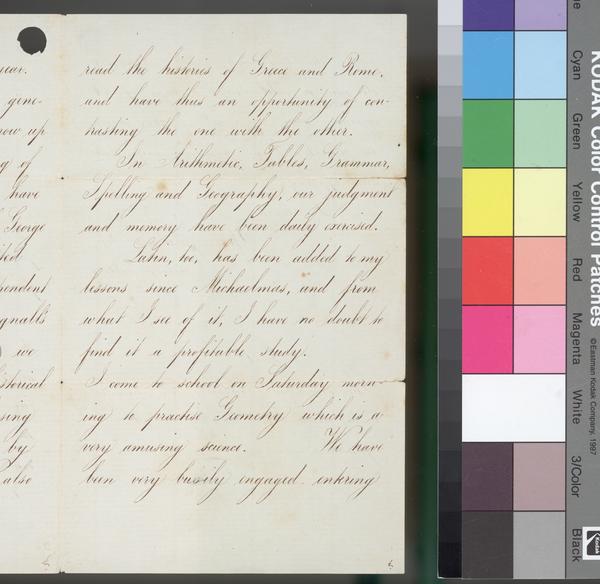 year.
gene-
now up
g of
have
George
pendent
gnall's
we
istorical
sing
by
also
read the histories of Greece and Rome,
and have thus an opportunity of con-
trasting the one with the other.
In Arithmetic, Tables, Grammar,
Spelling and Geography, our judgment
and memory have been daily exercised.
Latin, too, has been added to my
lessons since Michaelmas, and from
what I see of it, I have no doubt to
find it a profitable study.
I come to school on Saturday morn-
ing to practise Geometry which is a
very amusing science. We have
been very busily engaged entering
KODAK Color Control Patches
©Eastman Kodak Company, 1997
Cyan
Green
Yellow
Red
Magenta
White
3/Color
Black
Kodak